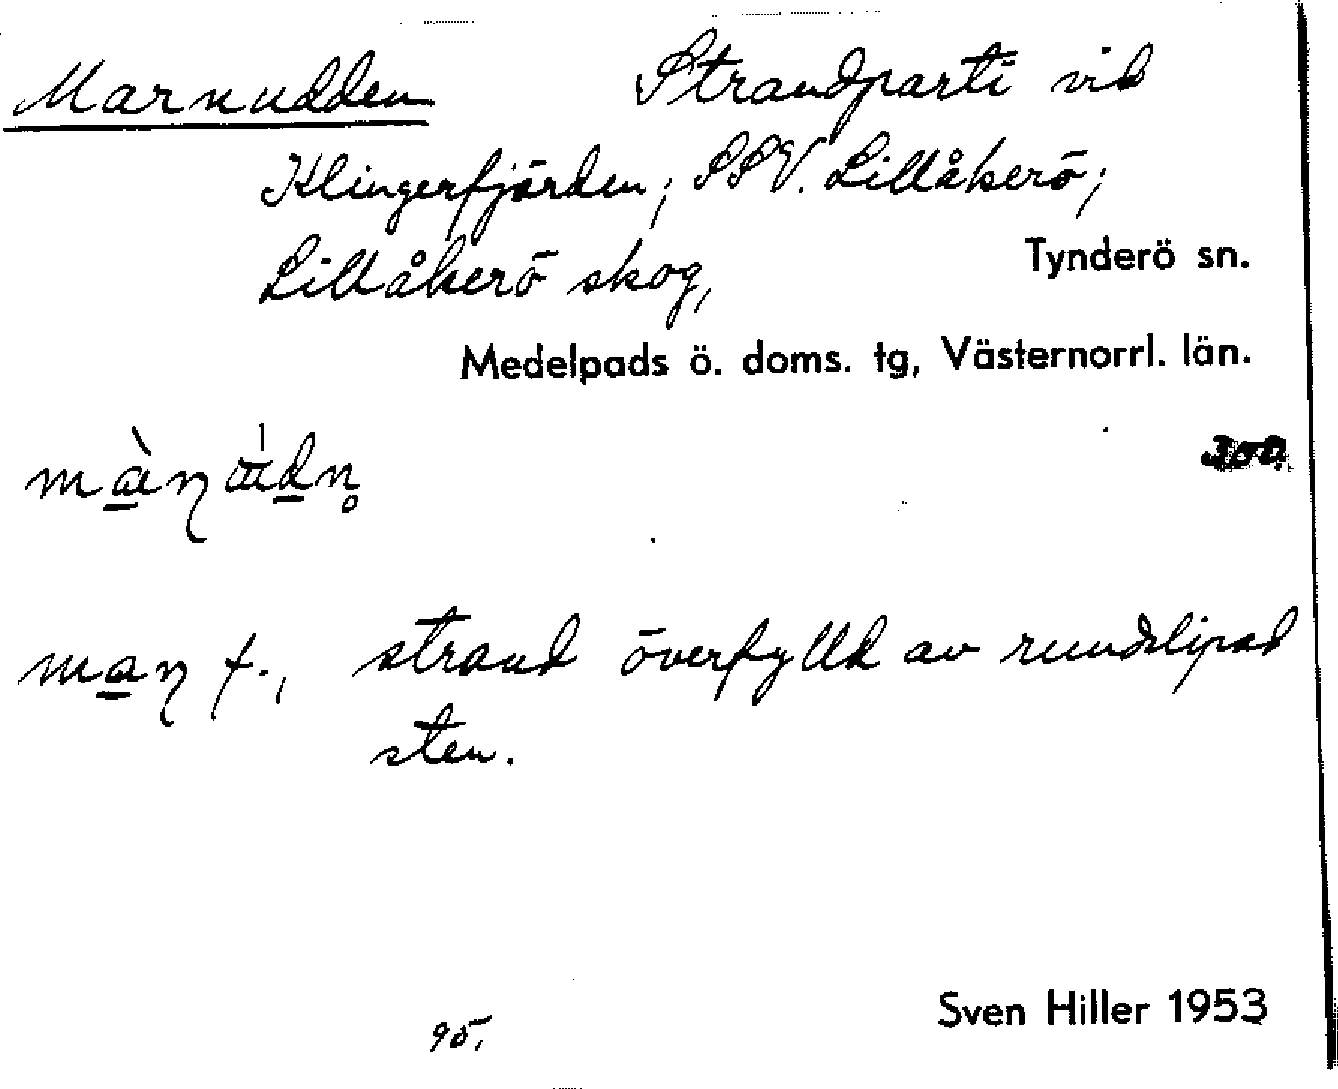 Marnudden Strandparti vid
Klingerfjärden; SSV. Lillåkerö;
Lillåkerö skog, Tynderö sn.
Medelpads ö. doms. tg, Västernorrl. län.
300.
maɳ f., strand överfylld av rundslipad
sten.
Sven Hiller 1953
95,